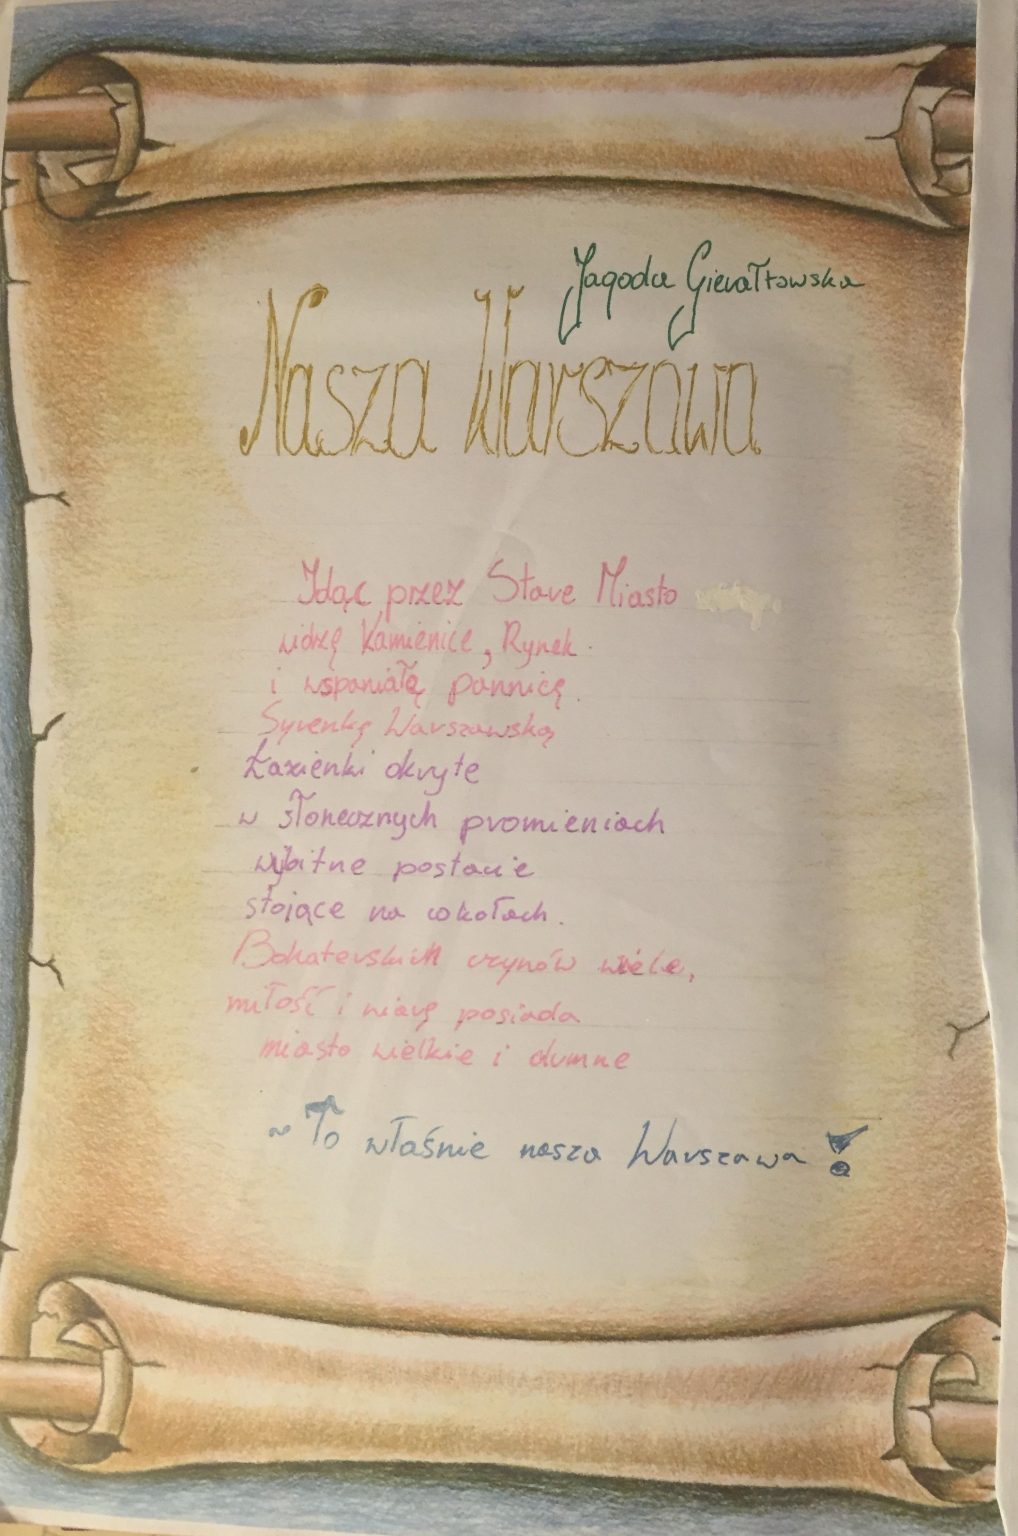 Jagoda Gierałtowska
Nasza Warszawa
Idąc przez Stare Miasto
widzę kamienice, Rynek
i wspaniałą pannicę.
Syrenkę Warszawską
Łazienki okryte
w słonecznych promieniach
wybitne postacie
stojące na cokołach.
Bohaterskich czynów wiele,
miłość i wiarę posiada
miasto wielkie i dumne
~ To właśnie nasza Warszawa!